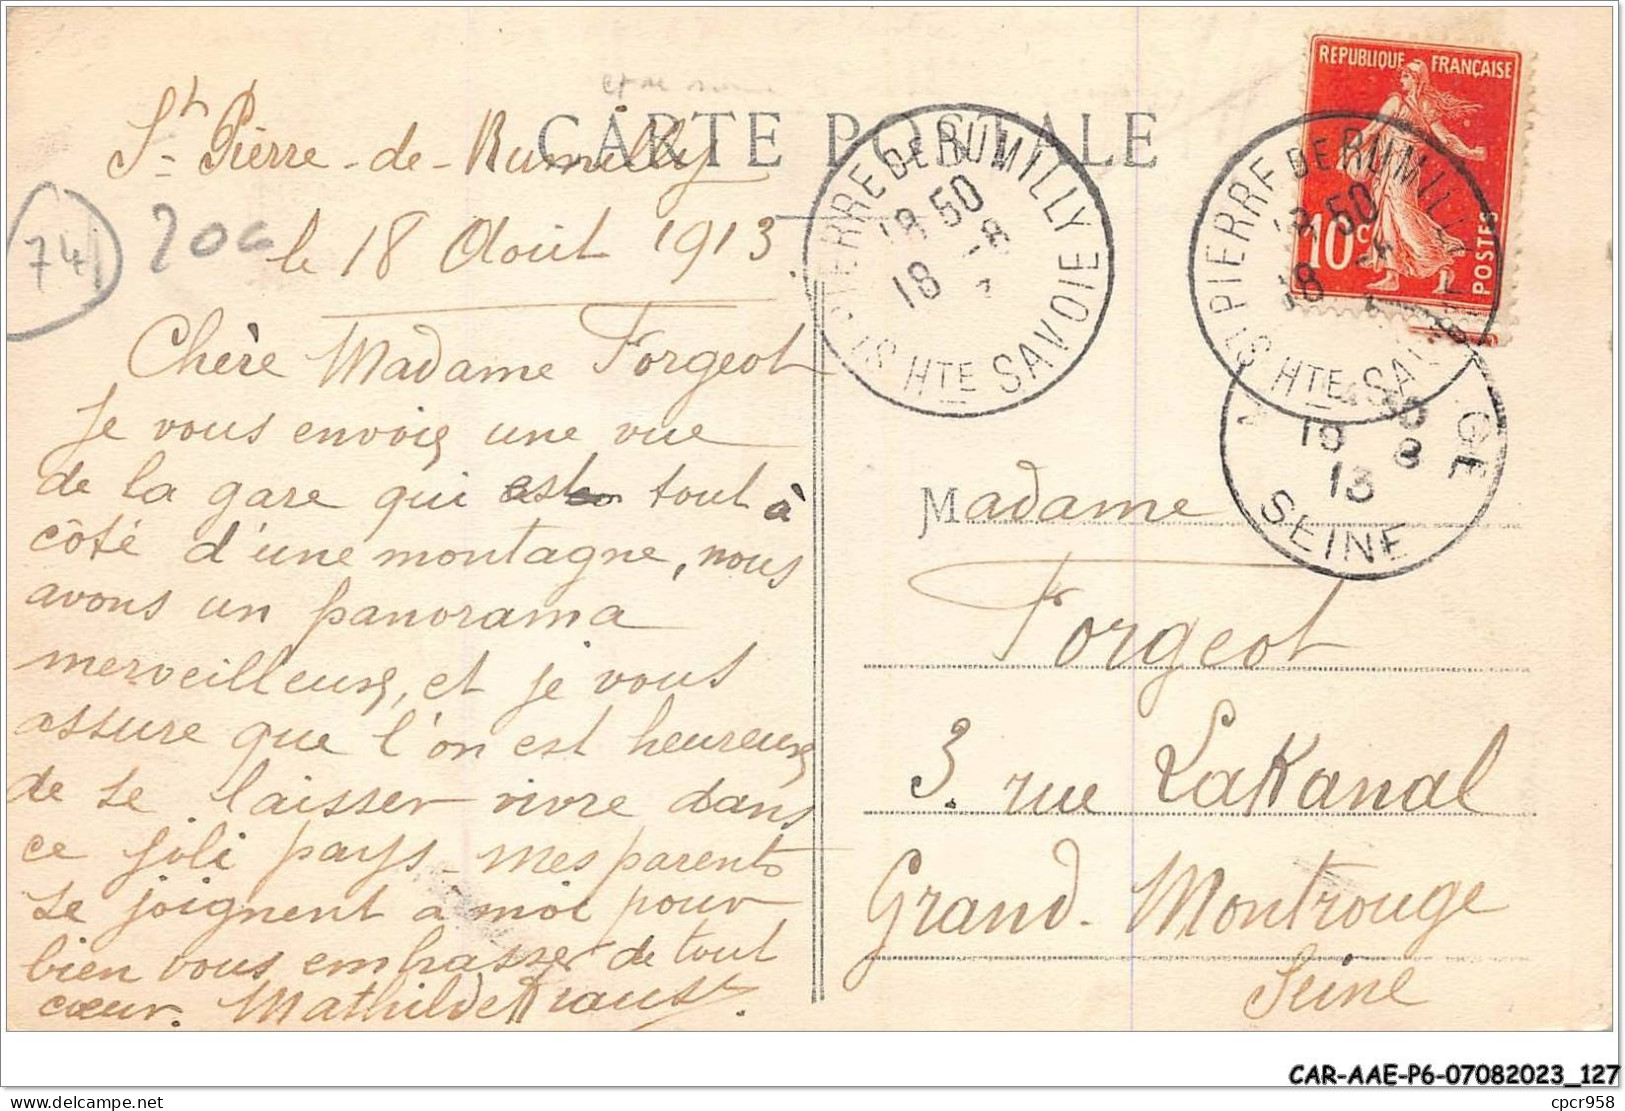 CARTE POSTALE
St Pierre-de-Rumilly
le 18 Août 1913
74
20c
Chère Madame Forgeot
Je vous envoie une vue
de la gare qui est tout à
côté d'une montagne, nous
avons un panorama
merveilleux, et je vous
assure que l'on est heureux
de se laisser vivre dans
ce joli pays - mes parents
se joignent à moi pour
bien vous embrasser de tout
cœur. Mathilde
ST PIERRE DE RUMILLY
18 50
18 -8
HTE SAVOIE
REPUBLIQUE FRANÇAISE
10c
POSTES
ST PIERRE DE RUMILLY
18 50
18
HTE SAVOIE
GE
19 8
13
SEINE
Madame
Forgeot
3. rue Lakanal
Grand-Montrouge
Seine
CAR-AAE-P6-07082023_127
cpcr958